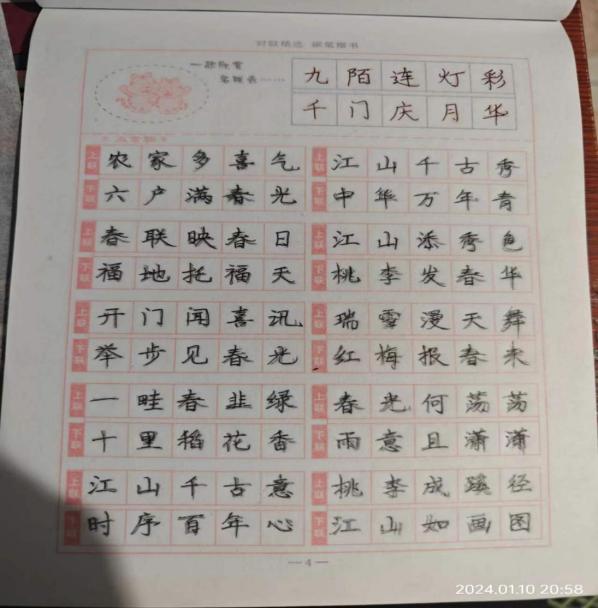 对联精选 硬笔楷书
九陌连灯彩
千门庆月华
五言联
上联 农家多喜气
下联 六户满春光
上联 江山千古秀
下联 中华万年青
上联 春联映春日
下联 福地托福天
上联 江山添秀色
下联 桃李发春华
上联 开门闻喜讯
下联 举步见春光
上联 瑞雪漫天舞
下联 红梅报春来
上联 一畦春韭绿
下联 十里稻花香
上联 春光何荡荡
下联 雨意且潇潇
上联 江山千古意
下联 时序百年心
上联 桃李成蹊径
下联 江山如画图
—4—
2024.01.10 20:58